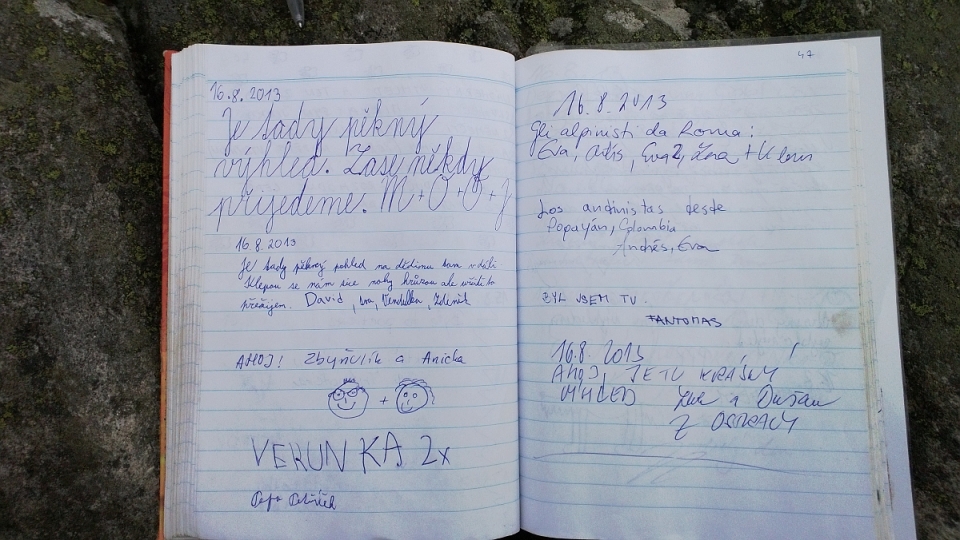 16.8.2013
Je tady pěkný
výhled. Zase někdy
přijedeme. M+O+O+J
16.8.2013
Je tady pěkný pohled na dědinu tam v dáli
klepou se nám sice nohy hrůzou ale určitě to
přežijem. David, Iva, Vendulka, Zdeněk
AHOJ! Zbyňulík a Anička
+
VERUNKA 2x
Pepa
47
16.8.2013
Gli alpinisti da Roma:
Eva, Eva2, + 
Los andinistas desde
Popayán, Colombia
Andrés, Eva
BYL JSEM TU.
FANTOMAS
16.8.2013
AHOJ, JE TU KRÁSNÝ
VÝHLED a Dušan
Z OSTRAVY